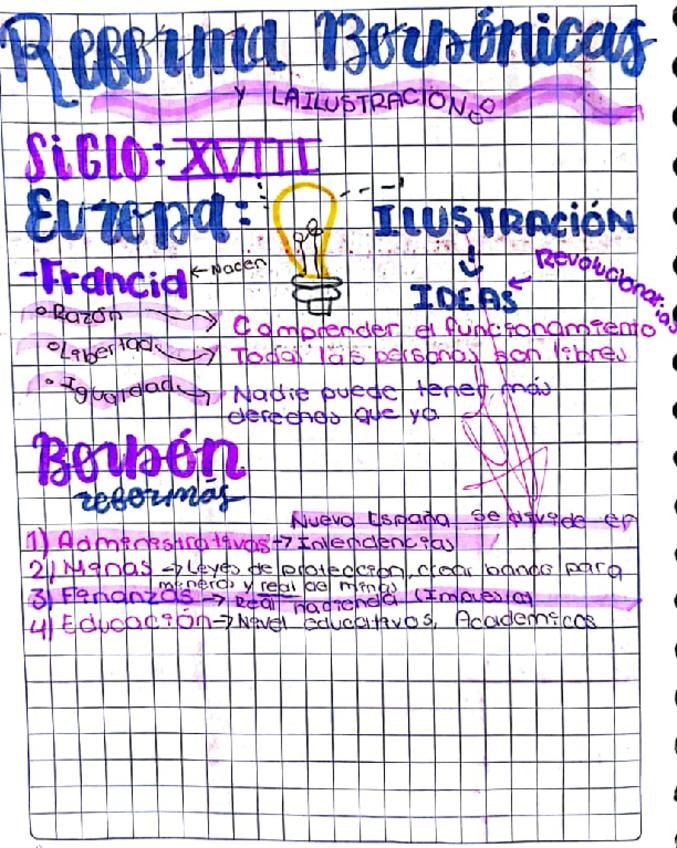 Reforma Borbónicas
Y LA ILUSTRACIÓN
SiGlO: XVIII
Europa: ILUSTRACIÓN
-Francia ←Nacen
IDEAS ← Revolucionarias
°Razón → Comprender el funcionamiento
°Libertad → Todas las personas son libres
°Igualdad → Nadie puede tener más
derechos que yo
Borbón
reformás
Nueva España se divide en
1) Administrativas → Intendencias
2) Minas → Leyes de protección, crear banco para
mineros y real de minas
3) Finanzas → Real hacienda (Impuesto)
4) Educación → Nivel educativos, Academicos